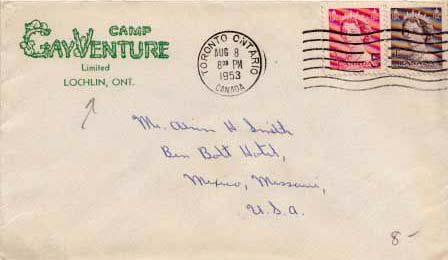 CAMP
GAY VENTURE
Limited
LOCHLIN, ONT.
TORONTO ONTARIO
AUG 8
8 PM
1953
CANADA
CANADA
Mr. H Smith
Ben Bolt Hotel,
Mexico, Missouri,
U.S.A.
8-